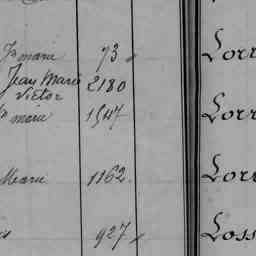 Jn marie 73
Jean Marie 2180
Victor
Jn marie 1547
Marie 1162
927
Lorr
Lorr
Lorr
Loss